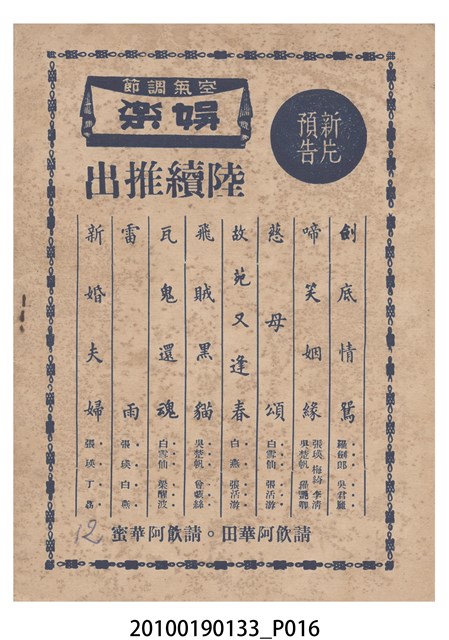 空氣調節
娛樂
新片
預告
陸續推出
劍底情鴛 羅劍郎 吳君麗
啼笑姻緣 張瑛 梅綺 李清 吳楚帆 羅艷卿
慈母頌 白雪仙 張活游
故苑又逢春 白燕 張活游
飛賊黑貓 吳楚帆 曾藝絲
瓦鬼還魂 白雪仙 梁醒波
雷雨 張瑛 白燕
新婚夫婦 張瑛 丁瑩
請飲阿華田。請飲阿華蜜
12
20100190133_P016